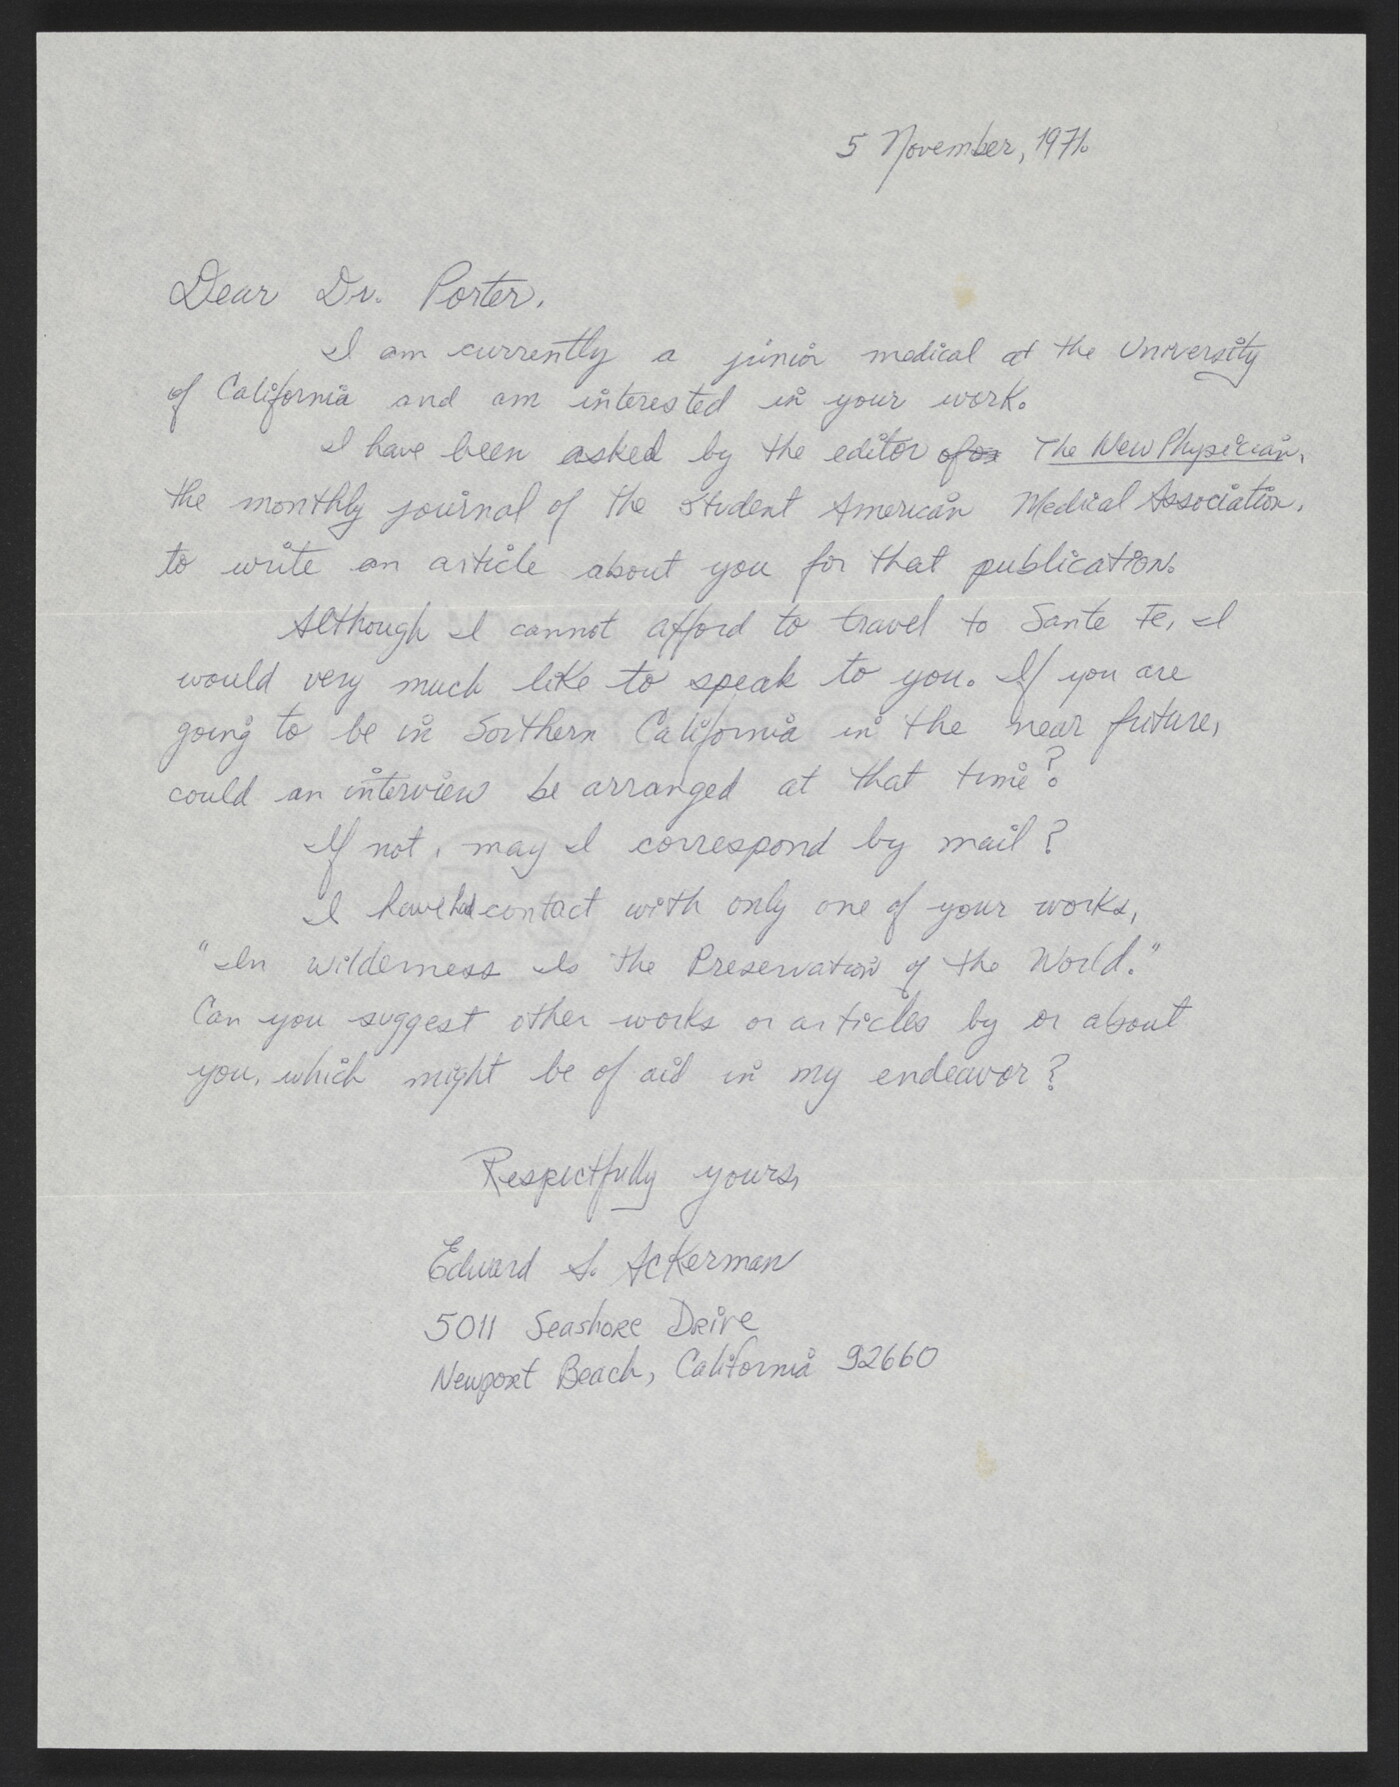 5 November, 1971.
Dear Dr. Porter,
I am currently a junior medical at the University
of California and am interested in your work.
I have been asked by the editor of The New Physician,
the monthly journal of the Student American Medical Association,
to write an article about you for that publication.
Although I cannot afford to travel to Sante Fe, I
would very much like to speak to you. If you are
going to be in Southern California in the near future,
could an interview be arranged at that time?
If not, may I correspond by mail?
I have had contact with only one of your works,
"In Wilderness Is the Preservation of the World."
Can you suggest other works or articles by or about
you, which might be of aid in my endeavor?
Respectfully yours,
Edward S. Ackerman
5011 Seashore Drive
Newport Beach, California 92660